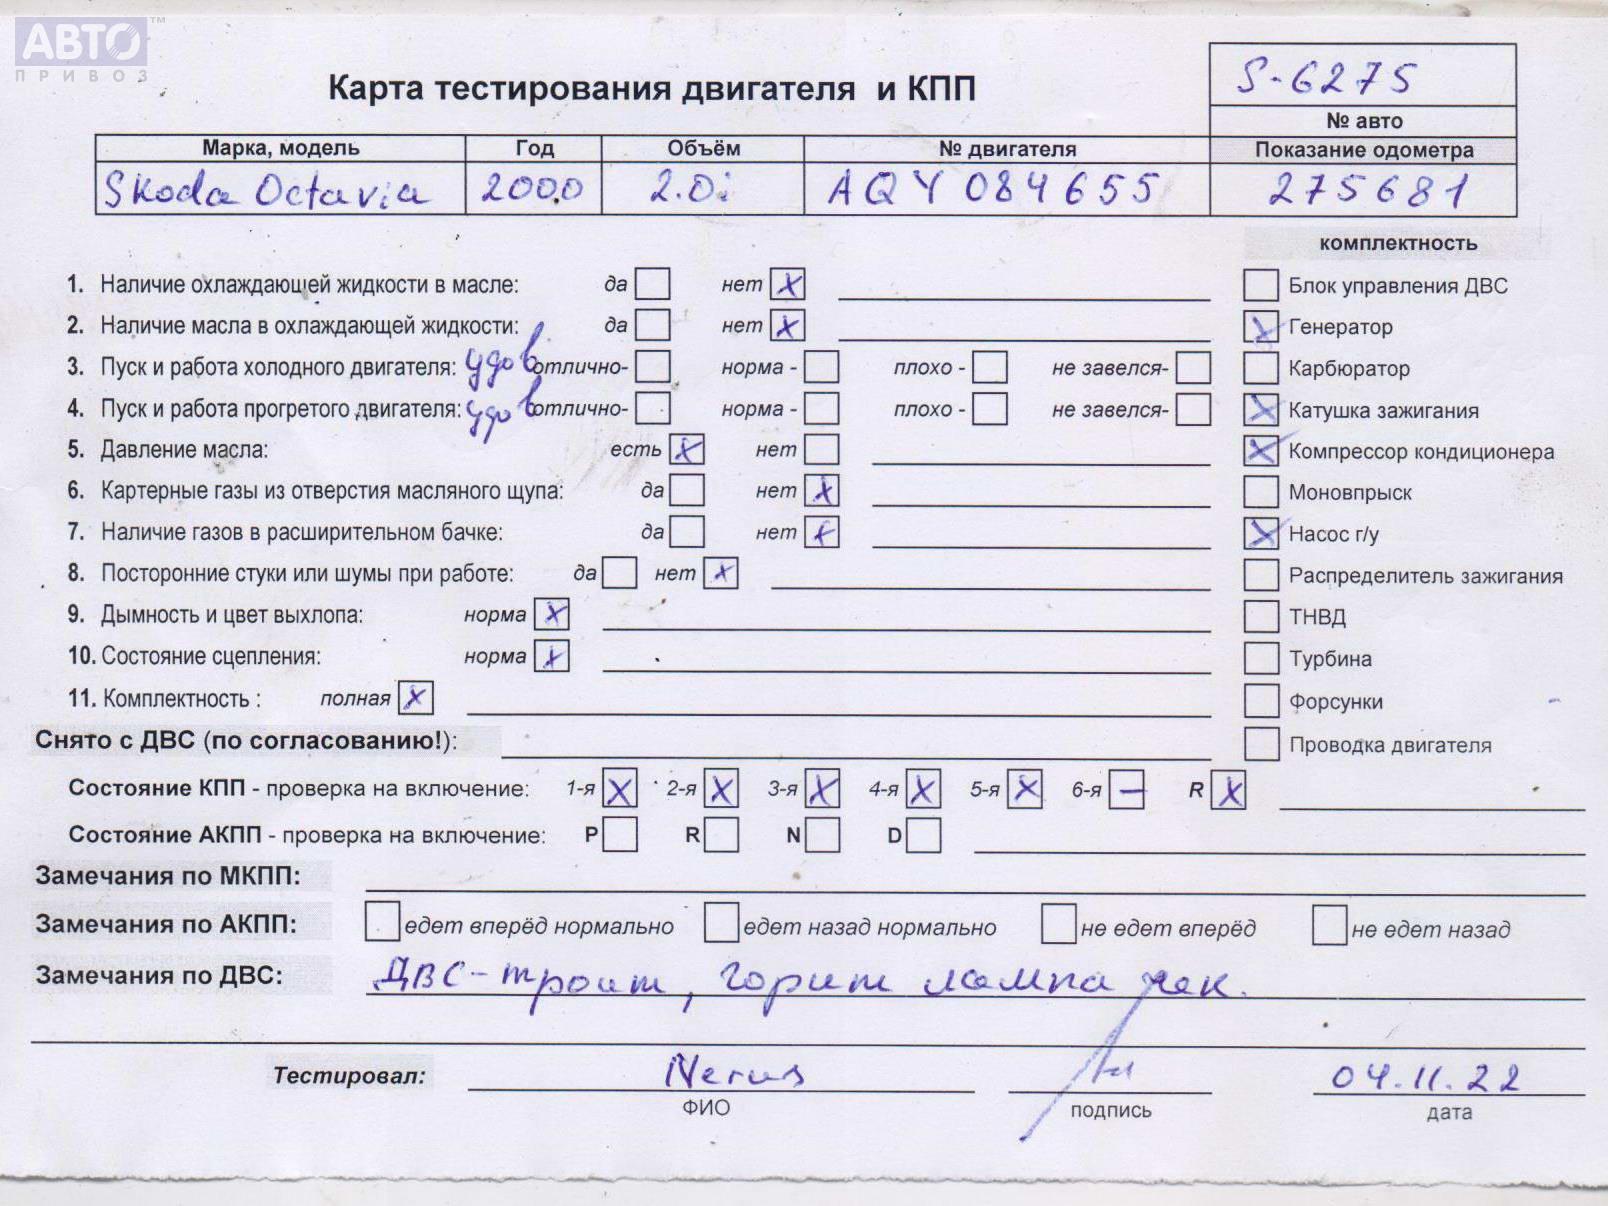 АВТО™
ПРИВОЗ
Карта тестирования двигателя и КПП
S-6275
№ авто
Марка, модель Год Объём № двигателя Показание одометра
Skoda Octavia 2000 2.0i AQY 084655 275681
комплектность
1. Наличие охлаждающей жидкости в масле: да нет X Блок управления ДВС
2. Наличие масла в охлаждающей жидкости: да нет X X Генератор
3. Пуск и работа холодного двигателя: удов отлично- норма - плохо - не завелся- Карбюратор
4. Пуск и работа прогретого двигателя: удов отлично- норма - плохо - не завелся- X Катушка зажигания
5. Давление масла: есть X нет X Компрессор кондиционера
6. Картерные газы из отверстия масляного щупа: да нет X Моновпрыск
7. Наличие газов в расширительном бачке: да нет X X Насос г/у
8. Посторонние стуки или шумы при работе: да нет X Распределитель зажигания
9. Дымность и цвет выхлопа: норма X ТНВД
10. Состояние сцепления: норма X Турбина
11. Комплектность : полная X Форсунки
Снято с ДВС (по согласованию!): Проводка двигателя
Состояние КПП - проверка на включение: 1-я X 2-я X 3-я X 4-я X 5-я X 6-я — R X
Состояние АКПП - проверка на включение: P R N D
Замечания по МКПП:
Замечания по АКПП: едет вперёд нормально едет назад нормально не едет вперёд не едет назад
Замечания по ДВС: ДВС-троит, горит лампа чек.
Тестировал: 04.11.22
ФИО подпись дата